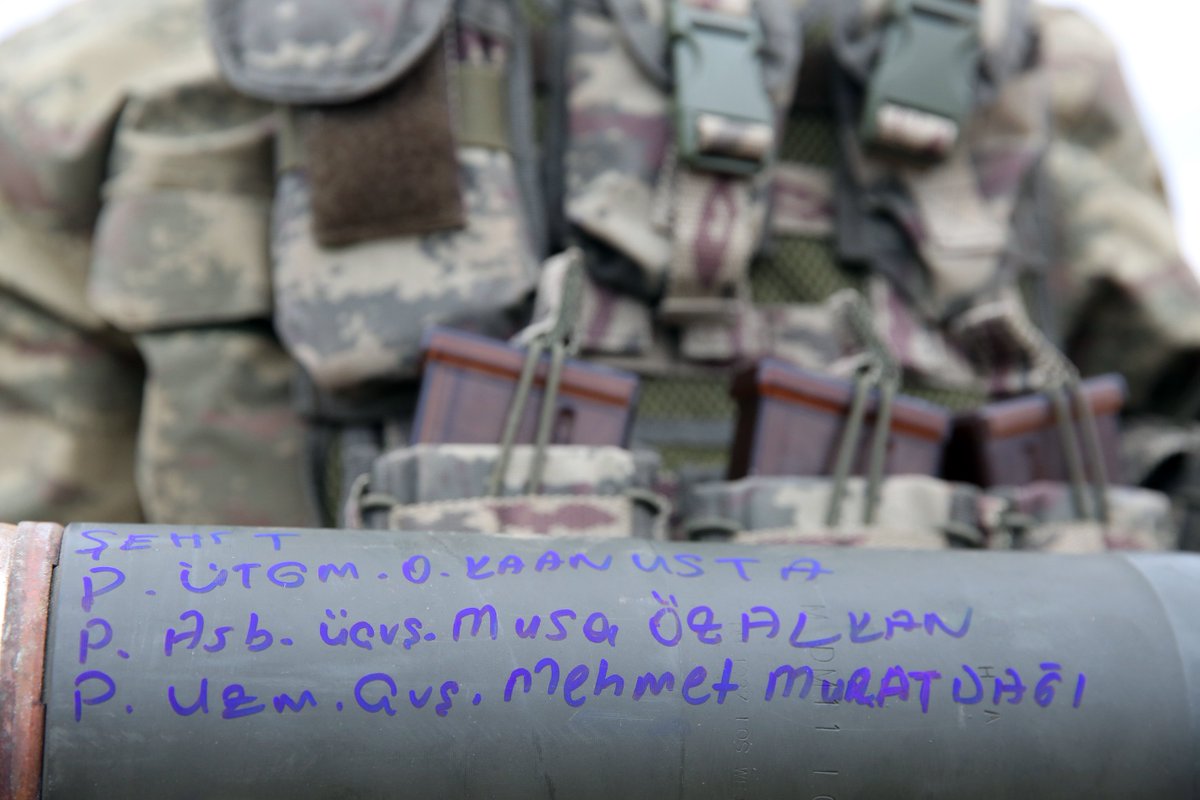 ŞEHİT
P. ÜTĞM. O. KAAN USTA
P. Asb. üçvş. Musa ÖZALKAN
P. Uzm. Çvş. Mehmet MURATDAĞI